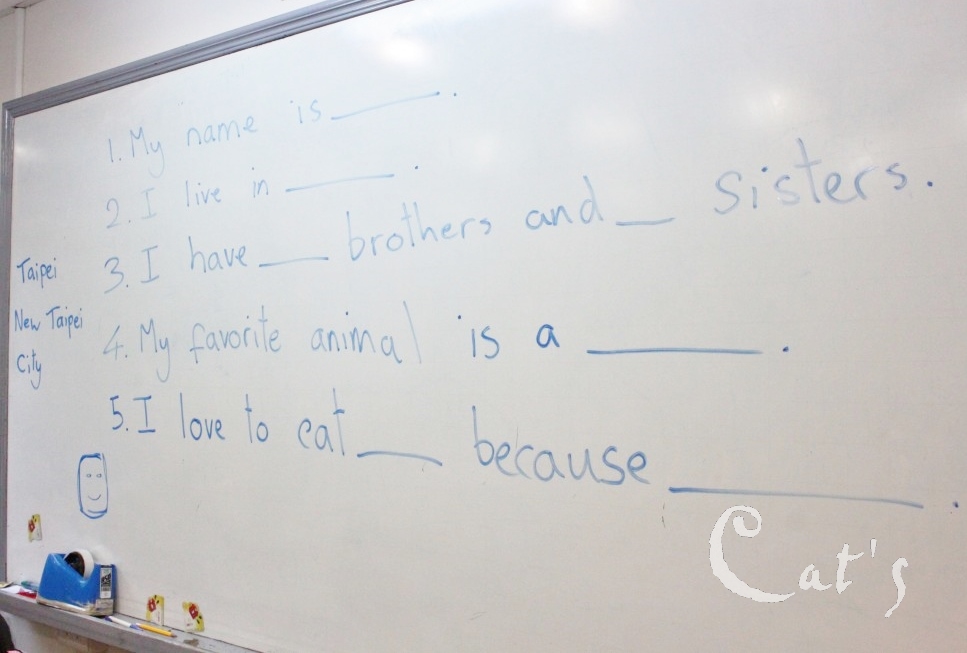 1. My name is ______.
2. I live in ______.
3. I have ___ brothers and ___ sisters.
Taipei
New Taipei
City
4. My favorite animal is a ______.
5. I love to eat ____ because ________.
Cat's